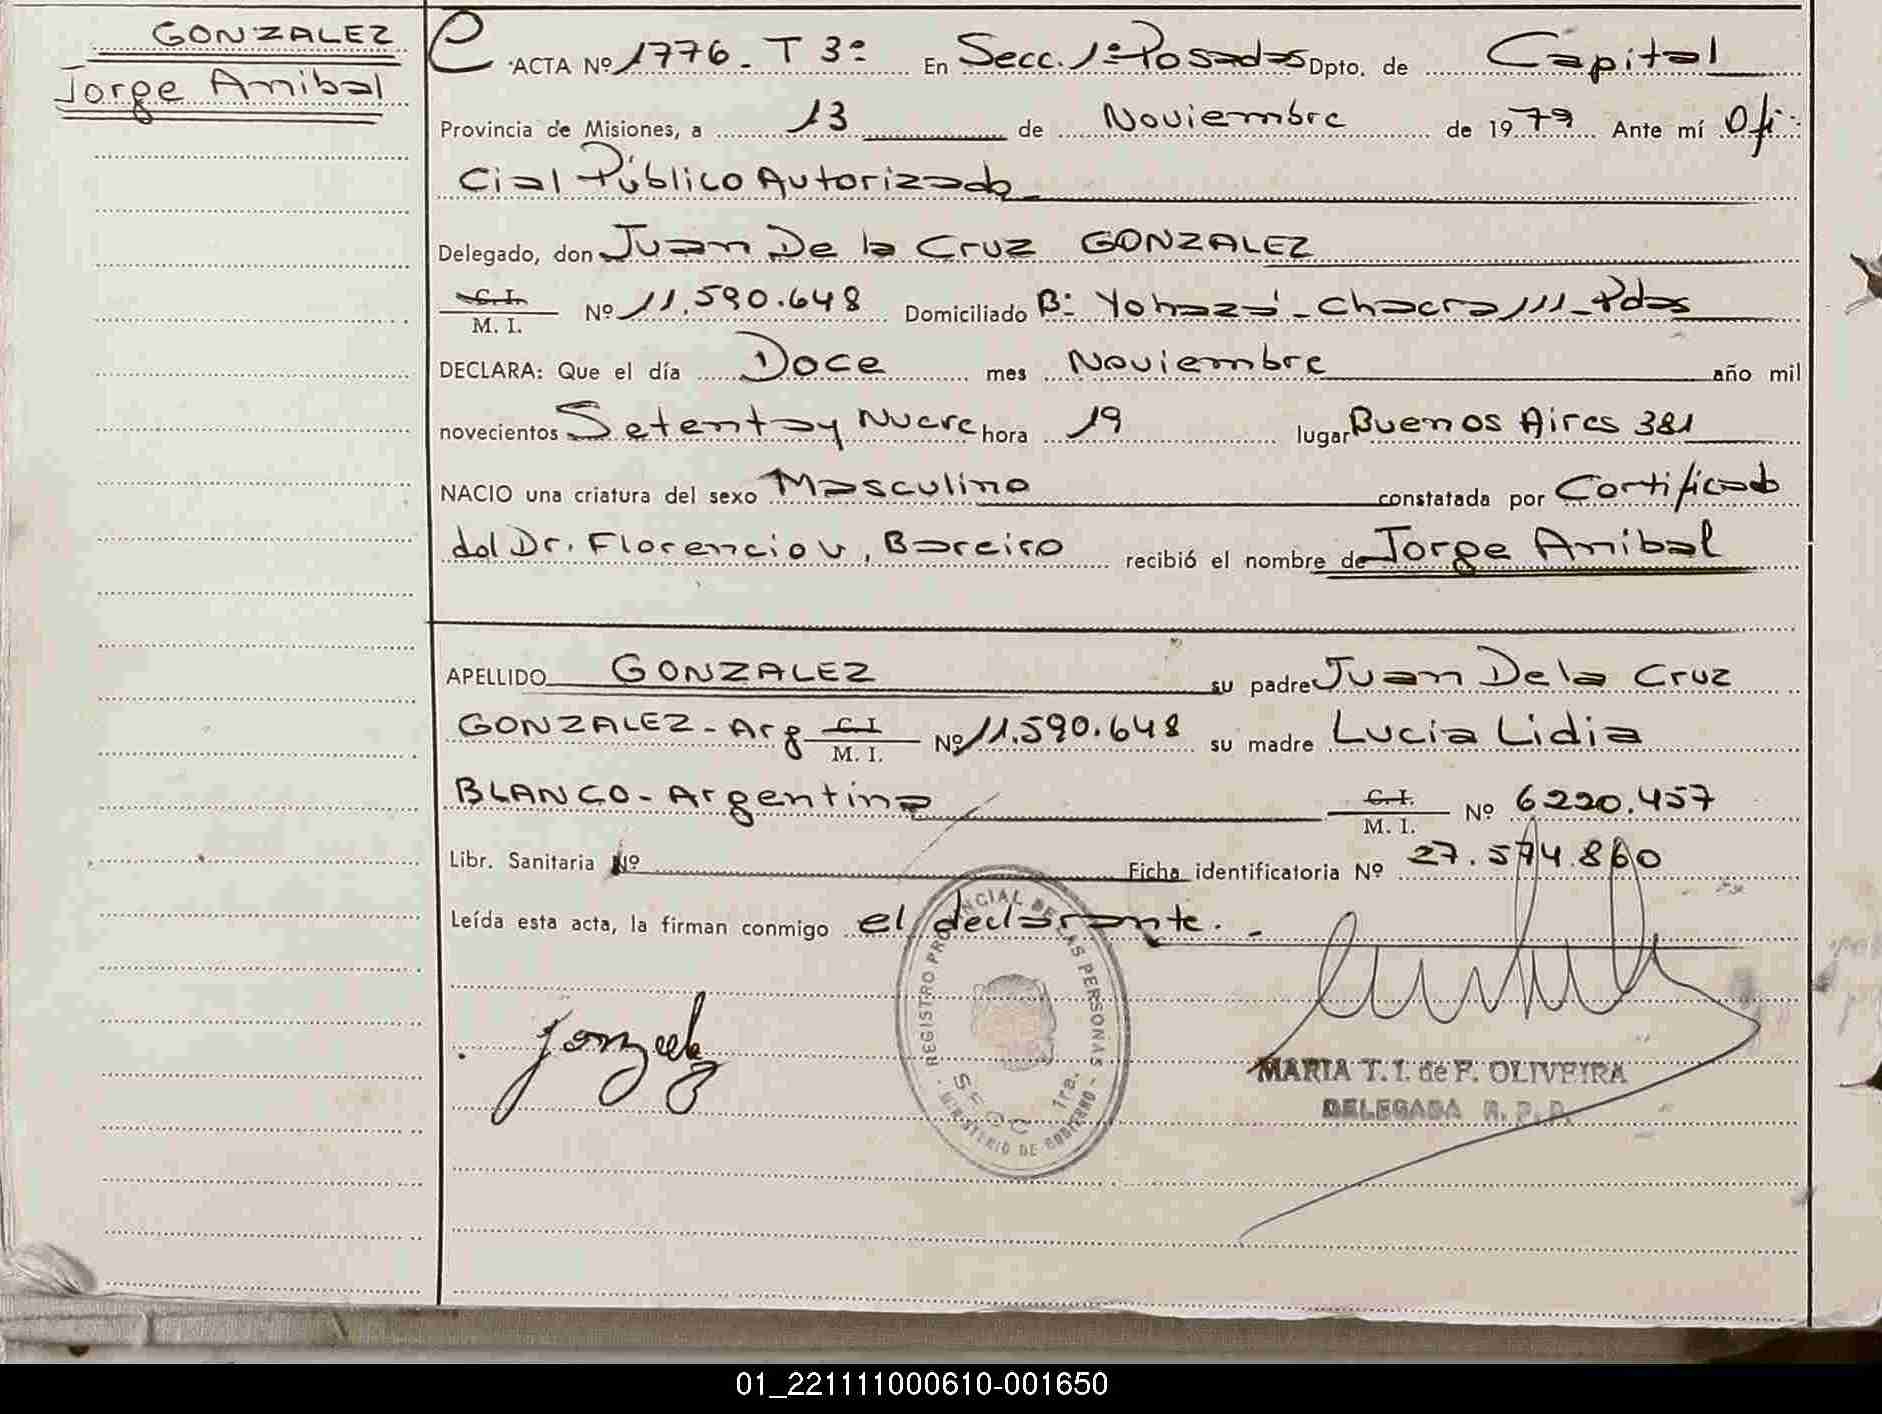 GONZALEZ
Jorge Anibal
ACTA Nº 1776. T 3º En Secc. 1º Posadas Dpto. de Capital
Provincia de Misiones, a 13 de Noviembre de 1979 Ante mí Ofi-
cial Público Autorizado
Delegado, don Juan De la Cruz GONZALEZ
C. I.
M. I. Nº 11.590.648 Domiciliado Bº Yohazá - Chacra 111 - Pdas
DECLARA: Que el día Doce mes Noviembre año mil
novecientos Setenta y Nueve hora 19 lugar Buenos Aires 381
NACIO una criatura del sexo Masculino constatada por Certificado
del Dr. Florencio V. Bareiro recibió el nombre de Jorge Anibal
APELLIDO GONZALEZ su padre Juan De la Cruz
GONZALEZ - Arg C. I. M. I. Nº 11.590.648 su madre Lucia Lidia
BLANCO - Argentina C. I. M. I. Nº 6220.457
Libr. Sanitaria Nº Ficha identificatoria Nº 27.574.860
Leída esta acta, la firman conmigo el declarante.
Gonzalez
REGISTRO PROVINCIAL DE LAS PERSONAS
SECC 1ra.
MINISTERIO DE GOBIERNO
MARIA T. I. de F. OLIVEIRA
DELEGADA R. P. P.
01_221111000610-001650